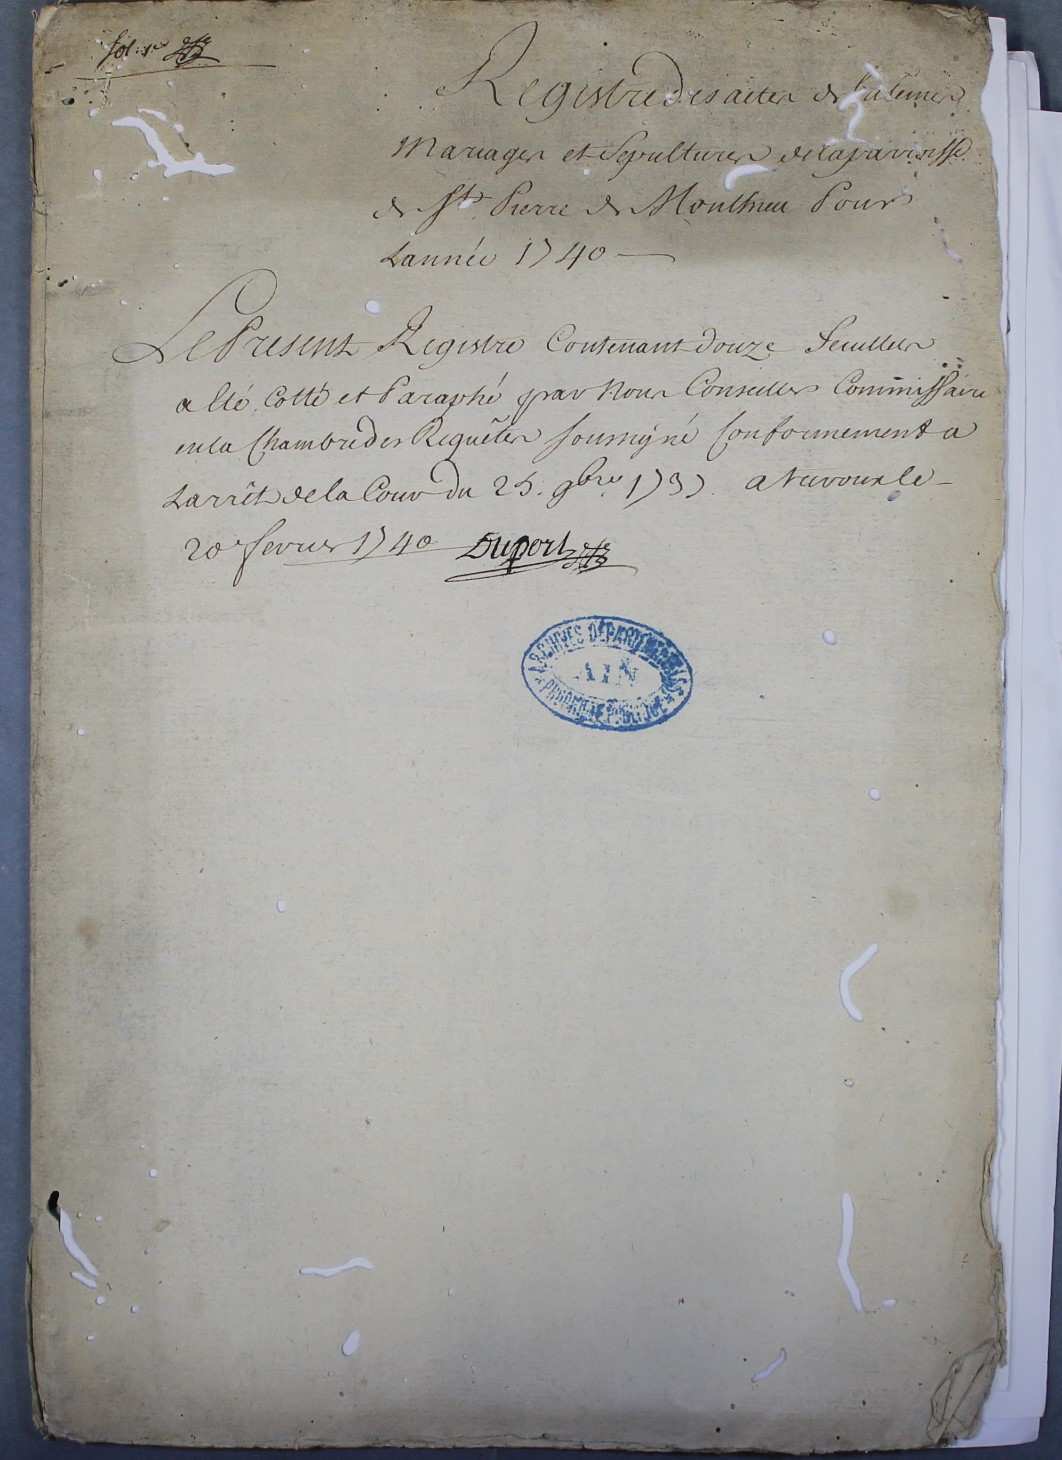 fol. 1er
Registre des actes de batemes
Mariages et Sepultures de la paroisse
de St Pierre de Monthieu Pour
Lannée 1740
Le Present Registre Contenant douze feuillets
a été Cotté et Paraphé par Nous Conseiller Commissaire
en la Chambre des Requêtes soussigné Conformement a
Larrêt de la Cour du 25. 9bre 1737. a Trevoux le
20e fevrier 1740 Duport
ARCHIVES DÉPARTEMENTALES
AIN
PROPRIÉTÉ PUBLIQUE